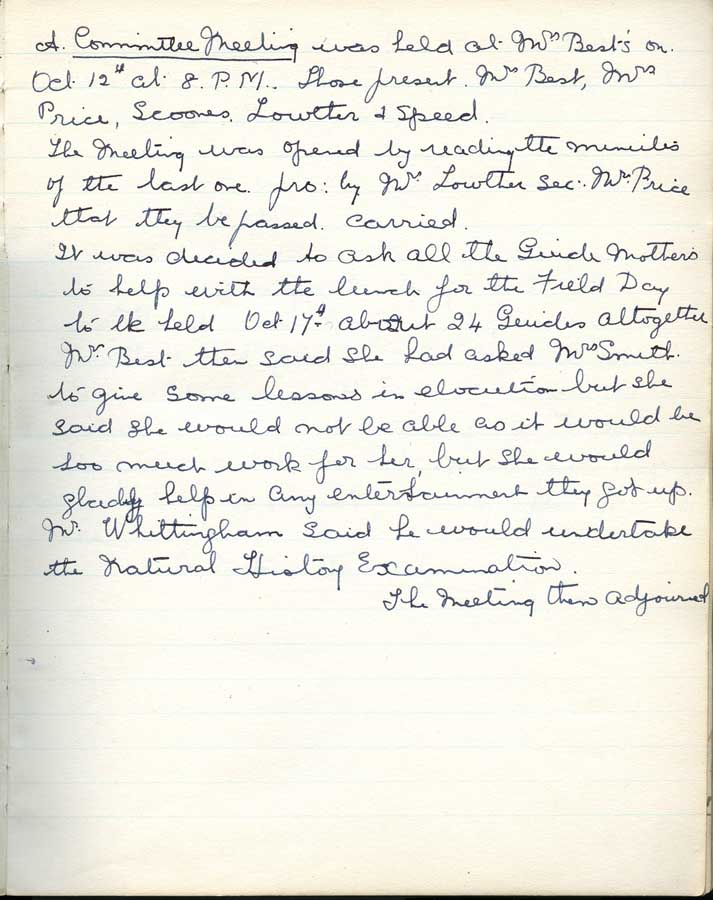 A. Committee Meeting was held at Mrs Best's on.
Oct. 12th at 8. P.M.. Those present. Mrs Best, Mrs
Price, Scoones. Lowther & Speed.
The Meeting was opened by reading the minutes
of the last one. pro: by Mrs Lowther sec. Mrs Price
that they be passed. carried.
It was decided to ask all the Guide Mothers
to help with the lunch for the Field Day
to be held Oct 17th. about 24 Guides altogether
Mrs Best then said she had asked Mrs Smith.
to give some lessons in elocution but she
said she would not be able as it would be
too much work for her, but she would
gladly help in any entertainment they got up.
Mr. Whittingham said he would undertake
the Natural History Examination.
The Meeting then adjourned